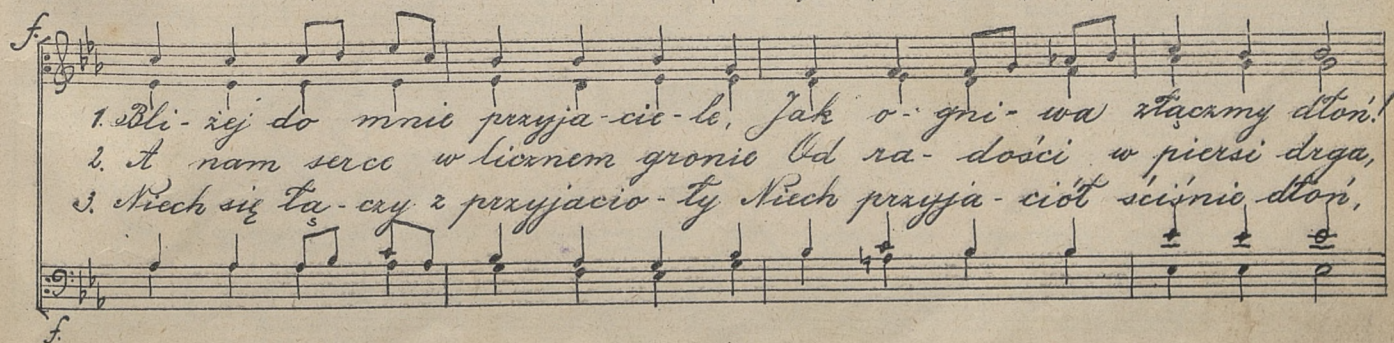 f.
1. Bli - żej do mnie przyja - cie - le, Jak o - gni - wa złączmy dłoń!
2. A nam serce w licznem gronie Od ra - dości w piersi drga,
3. Niech się łą - czy z przyjacio - ły Niech przyja - ciół ściśnie dłoń,
f.